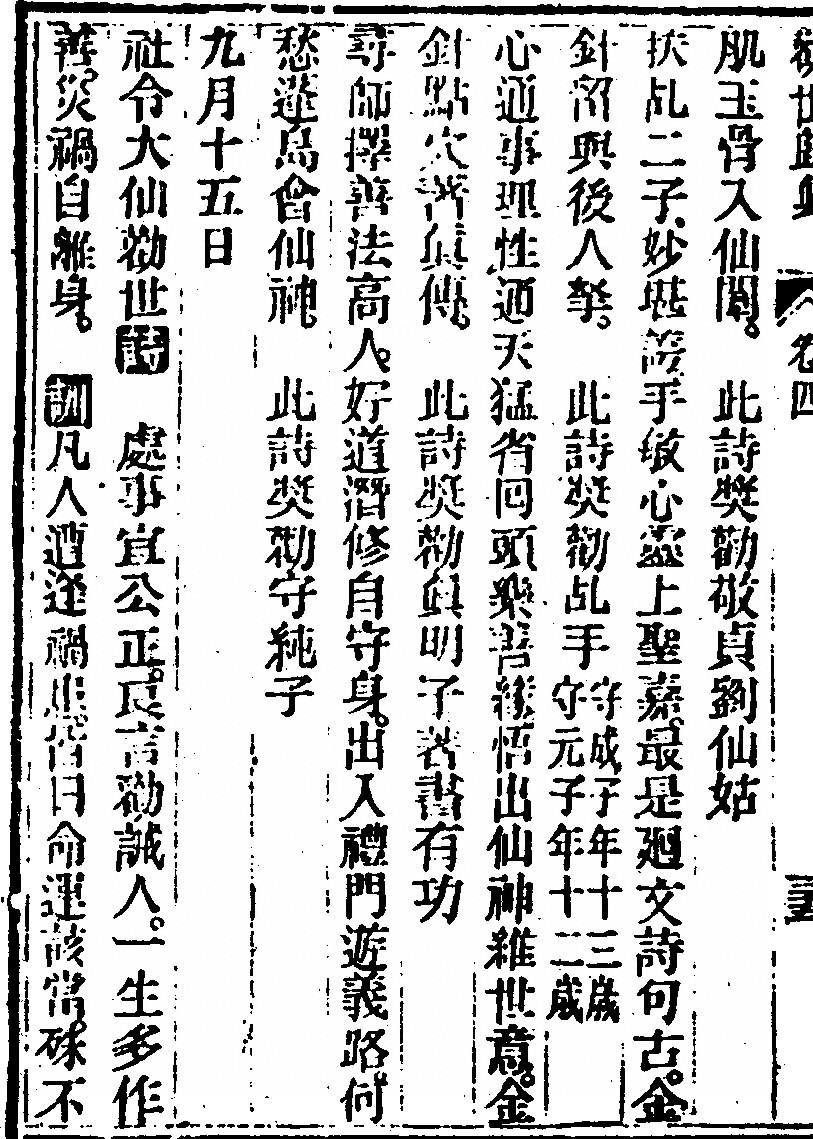 救世歸真 卷四
肌玉骨入仙關。 此詩獎勸敬貞劉仙姑
扶乩二子妙堪誇手敏心靈上聖嘉。最是廻文詩句古。金
針留與後人拏。 此詩獎勸乩手守成子年十三歲守元子年十二歲
心通事理性通天猛省回頭樂善緣悟出仙神維世意。金
針點穴著真傳。 此詩獎勸真明子著書有功
尋師擇善法高人。好道潛修自守身。出入禮門遊義路何
愁蓬島會仙神。 此詩獎勸守純子
九月十五日
社令大仙勸世詩 處事宜公正。良言勸誠人。一生多作
善。災禍自離身。 訓凡人遭逢禍患。皆曰命運該當。殊不